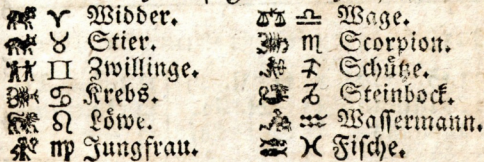 ♈ Widder.
♉ Stier.
♊ Zwillinge.
♋ Krebs.
♌ Löwe.
♍ Jungfrau.
♎ Wage.
♏ Scorpion.
♐ Schütze.
♑ Steinbock.
♒ Wassermann.
♓ Fische.